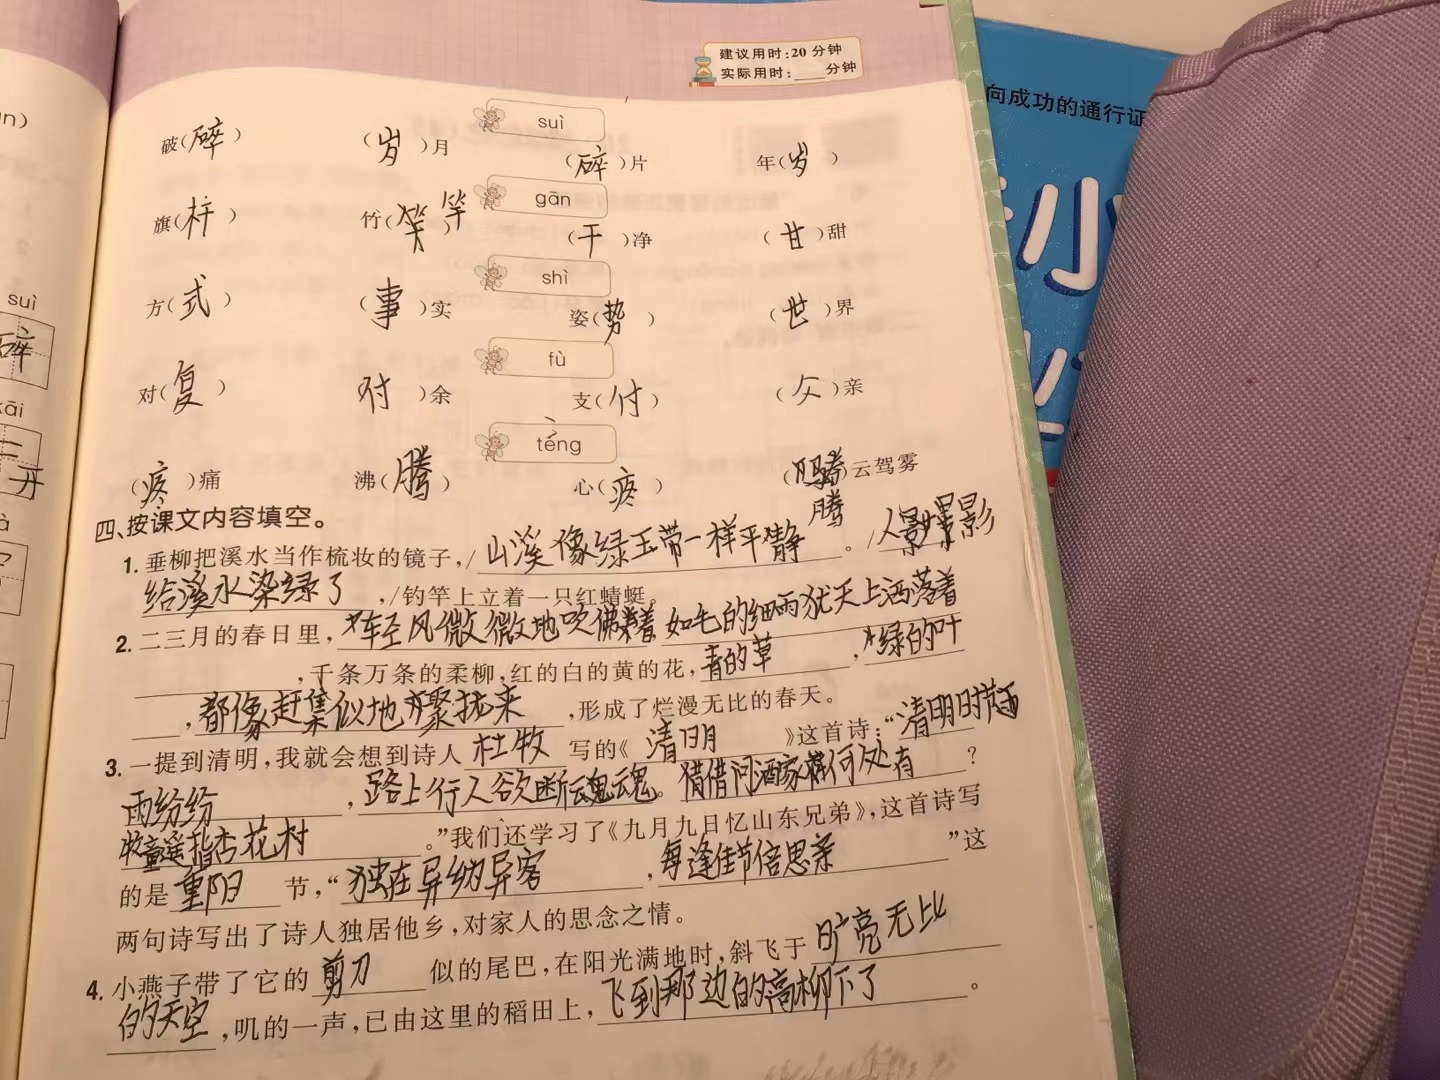 建议用时:20 分钟
实际用时:____分钟
向成功的通行证
suì
破(碎) (岁)月 (碎)片 年(岁)
gān
旗(杆) 竹(竿) (干)净 (甘)甜
shì
方(式) (事)实 姿(势) (世)界
fù
对(复) (付)余 支(付) (父)亲
téng
(疼)痛 沸(腾) 心(疼) (腾)云驾雾
四、按课文内容填空。
1. 垂柳把溪水当作梳妆的镜子,/山溪像绿玉带一样平静。/人影
给溪水染绿了,/钓竿上立着一只红蜻蜓。
2. 二三月的春日里,轻风微微地吹拂着 如毛的细雨犹天上洒落着
,千条万条的柔柳,红的白的黄的花,青的草,绿的叶
,都像赶集似地聚拢来,形成了烂漫无比的春天。
3. 一提到清明,我就会想到诗人杜牧写的《清明》这首诗:“清明时节雨
雨纷纷,路上行人欲断魂魂。借借问酒家何处有?
牧童遥指杏花村。”我们还学习了《九月九日忆山东兄弟》,这首诗写
的是重阳节,“独在异乡为异客,每逢佳节倍思亲”这
两句诗写出了诗人独居他乡,对家人的思念之情。
4. 小燕子带了它的剪刀似的尾巴,在阳光满地时,斜飞于旷亮无比
的天空,叽的一声,已由这里的稻田上,飞到那边的高柳下了。
suì
碎
kāi
开